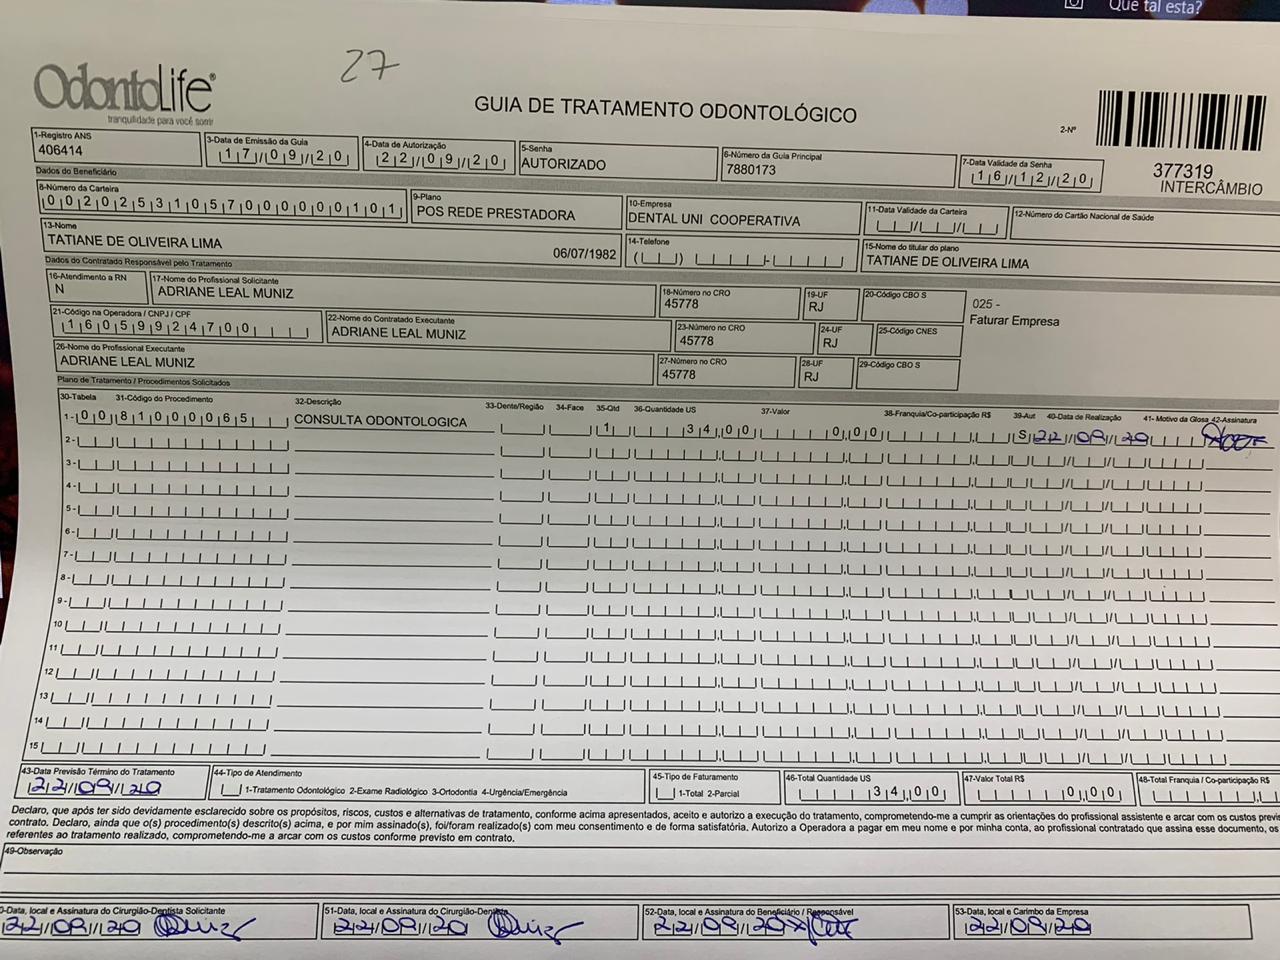 Que tal esta?
27
OdontoLife®
tranquilidade para você sorrir
GUIA DE TRATAMENTO ODONTOLÓGICO
2-Nº
377319
INTERCÂMBIO
1-Registro ANS
406414
3-Data de Emissão da Guia
17/09/20
4-Data de Autorização
22/09/20
5-Senha
AUTORIZADO
6-Número da Guia Principal
7880173
7-Data Validade da Senha
16/12/20
Dados do Beneficiário
8-Número da Carteira
00202531057000000101
9-Plano
POS REDE PRESTADORA
10-Empresa
DENTAL UNI COOPERATIVA
11-Data Validade da Carteira
12-Número do Cartão Nacional de Saúde
13-Nome
TATIANE DE OLIVEIRA LIMA 06/07/1982
14-Telefone
15-Nome do titular do plano
TATIANE DE OLIVEIRA LIMA
Dados do Contratado Responsável pelo Tratamento
16-Atendimento a RN
N
17-Nome do Profissional Solicitante
ADRIANE LEAL MUNIZ
18-Número no CRO
45778
19-UF
RJ
20-Código CBO S
025 -
Faturar Empresa
21-Código na Operadora / CNPJ / CPF
16059924700
22-Nome do Contratado Executante
ADRIANE LEAL MUNIZ
23-Número no CRO
45778
24-UF
RJ
25-Código CNES
26-Nome do Profissional Executante
ADRIANE LEAL MUNIZ
27-Número no CRO
45778
28-UF
RJ
29-Código CBO S
Plano de Tratamento / Procedimentos Solicitados
30-Tabela 31-Código do Procedimento 32-Descrição 33-Dente/Região 34-Face 35-Qtd 36-Quantidade US 37-Valor 38-Franquia/Co-participação R$ 39-Aut 40-Data de Realização 41- Motivo da Glosa 42-Assinatura
1- 00 81000065 CONSULTA ODONTOLOGICA 1 34,00 0,00 S 22/09/20
2-
3-
4-
5-
6-
7-
8-
9-
10
11
12
13
14
15
43-Data Previsão Término do Tratamento
22/09/20
44-Tipo de Atendimento
1-Tratamento Odontológico 2-Exame Radiológico 3-Ortodontia 4-Urgência/Emergência
45-Tipo de Faturamento
1-Total 2-Parcial
46-Total Quantidade US
34,00
47-Valor Total R$
0,00
48-Total Franquia / Co-participação R$
Declaro, que após ter sido devidamente esclarecido sobre os propósitos, riscos, custos e alternativas de tratamento, conforme acima apresentados, aceito e autorizo a execução do tratamento, comprometendo-me a cumprir as orientações do profissional assistente e arcar com os custos previs
contrato. Declaro, ainda que o(s) procedimento(s) descrito(s) acima, e por mim assinado(s), foi/foram realizado(s) com meu consentimento e de forma satisfatória. Autorizo a Operadora a pagar em meu nome e por minha conta, ao profissional contratado que assina esse documento, os
referentes ao tratamento realizado, comprometendo-me a arcar com os custos conforme previsto em contrato.
49-Observação
-Data, local e Assinatura do Cirurgião-Dentista Solicitante
22/09/20
51-Data, local e Assinatura do Cirurgião-Dentista
22/09/20
52-Data, local e Assinatura do Beneficiário / Responsável
22/09/20
53-Data, local e Carimbo da Empresa
22/09/20